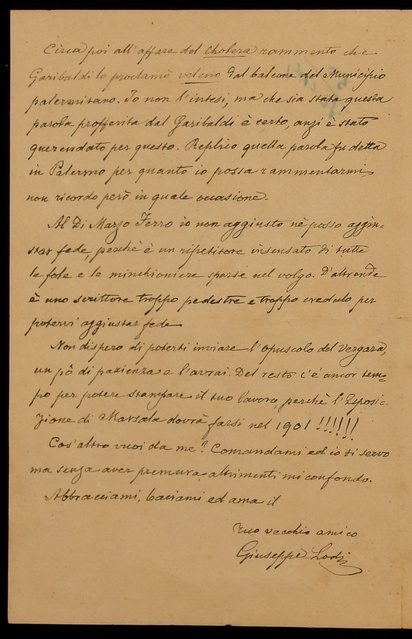 Circa poi all'affare del cholera rammento che
Garibaldi lo proclamò veleno dal balcone del Municipio
palermitano. Io non l'intesi, ma che sia stata questa
parola profferita dal Garibaldi è certo, anzi è stato
querendato per questo. Replico quella parola fu detta
in Palermo per quanto io possa rammentarmi
non ricordo però in quale occasione.
Al Di Marzo Ferro io non aggiusto nè posso aggiu-
star fede, perchè è un ripetitore insensato di tutte
le fole e le minchionerie sparse nel volgo. D'altronde
è uno scrittore troppo pedestre e troppo credulo per
potervi aggiustar fede.
Non dispero di poterti inviare l'opuscolo del Vergara,
un pò di pazienza e l'avrai. Del resto c'è ancor tem-
po per potere stampare il tuo lavoro, perchè l'Esposi-
zione di Marsala dovrà farsi nel 1901 !!!!!!
Cos'altro vuoi da me? Comandami ed io ti servo
ma senza aver premura, altrimenti mi confondo.
Abbracciami, baciami ed ama il
tuo vecchio amico
Giuseppe Lodi